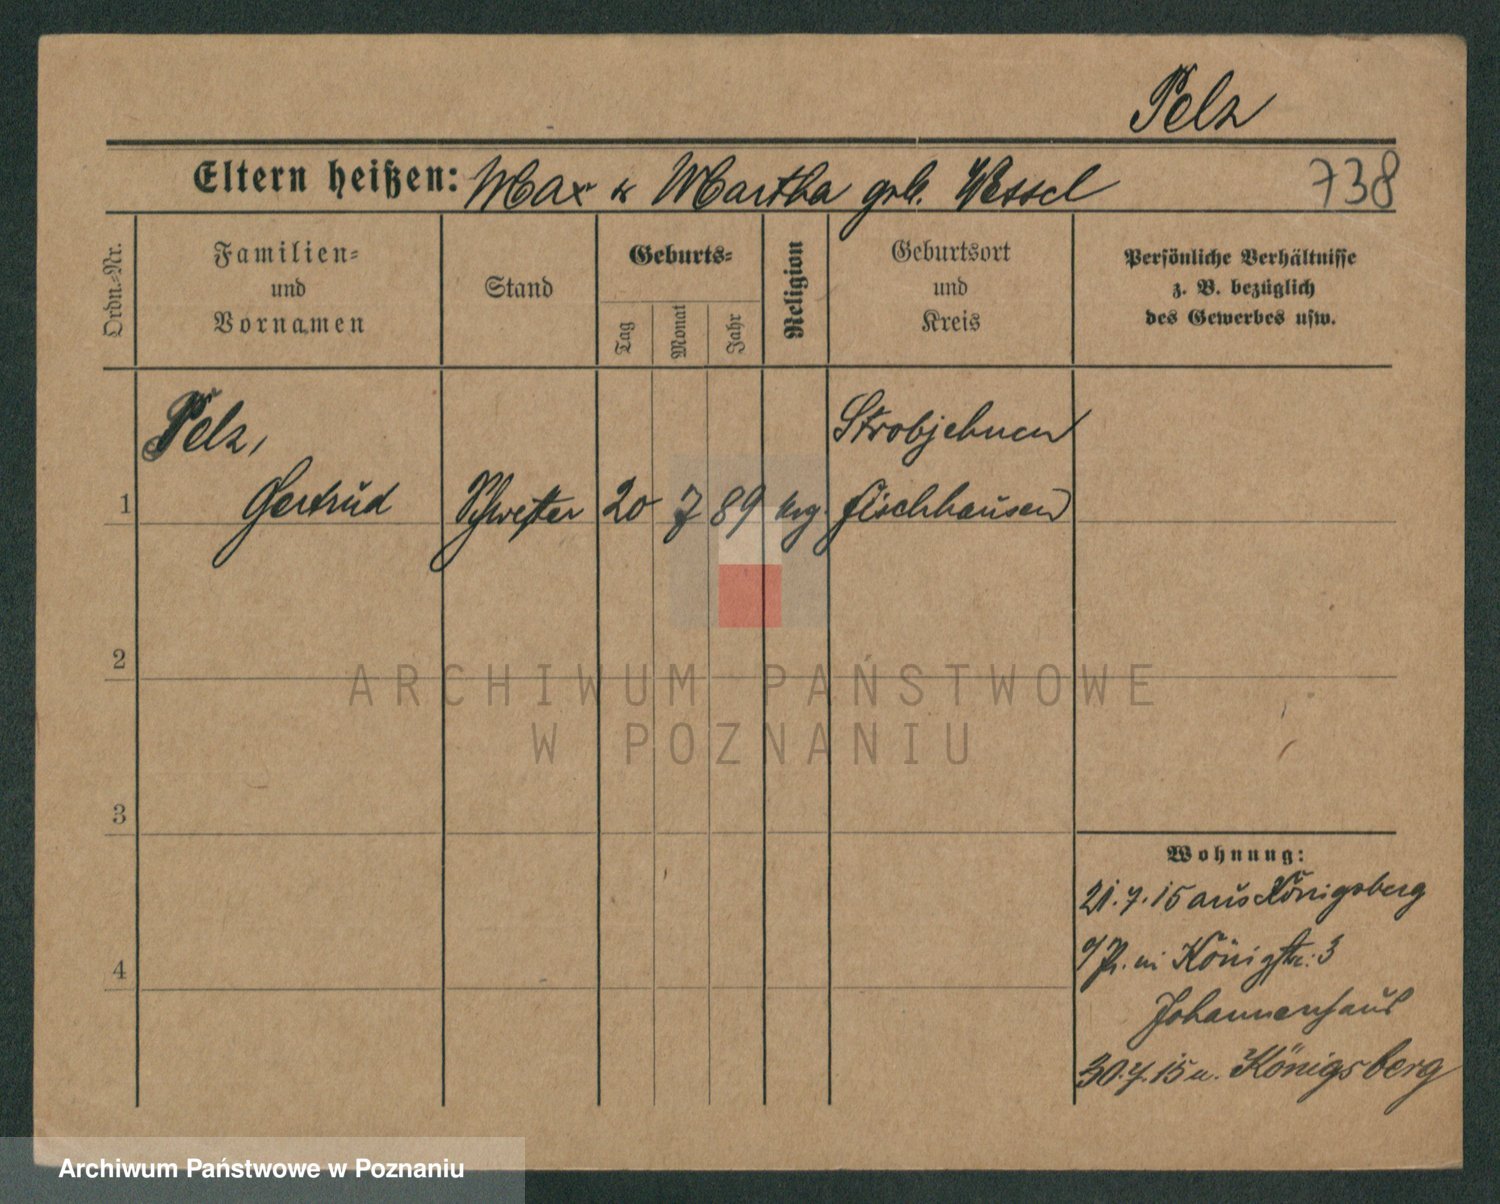 Pelz
Eltern heißen: Max & Martha geb. Wessel
738
Ordn.-Nr.
Familien-
und
Vornamen
Stand
Geburts-
Tag
Monat
Jahr
Religion
Geburtsort
und
Kreis
Persönliche Verhältnisse
z. B. bezüglich
des Gewerbes usw.
Pelz,
Strobjehnen
1 Gertrud Schwester 20 7 89 evg. Fischhausen
2
3
4
Wohnung:
21.7.15 aus Königsberg
i/Pr. in Königstr. 3
Johannenhaus
30.7.15 n. Königsberg
ARCHIWUM PAŃSTWOWE
W POZNANIU
Archiwum Państwowe w Poznaniu